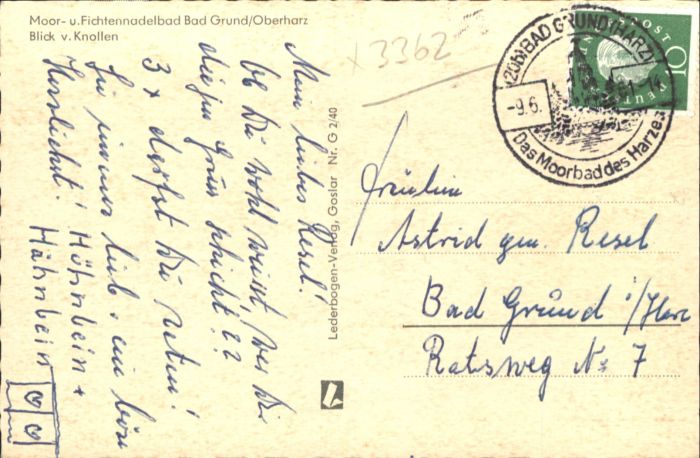 Moor- u. Fichtennadelbad Bad Grund/Oberharz
Blick v. Knollen
x 3362
Mein liebes Resel!
Ob Du wohl weisst, wer Dir
diesen Gruss schickt??
3 x darfst Du raten!
immer lieb, nie böse
Herzlichst! Höhnbein +
Hähnbein
Lederbogen-Verlag, Goslar Nr. G 2/40
(20b) BAD GRUND (HARZ)
-9.6. 61-14
Das Moorbad des Harzes
POST
10
Fräulein
Astrid gen. Resel
Bad Grund i/Harz
Ratsweg No 7